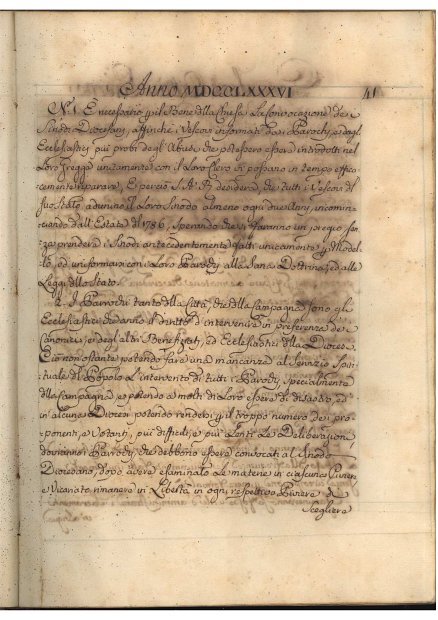 Anno MDCCLXXXVI 41
N.º 1. È necessario p il Bene della Chiesa La Convocazione de
Sinodi Diocesani, affinchè i Vescovi informati dai Parochj, e dagli
Ecclesiastici più probi degl'Abusi che potessero essersi introdotti nel
Loro Gregge unitamente con il Loro Clero vi possano in tempo effica
cemente riparare, E perciò S.A.R. desidera, che tutti i Vescovi del
suo Stato adunino il Loro Sinodo almeno ogni due Anni, incomin
ciando dall'Estate del 1786, Sperando che si faranno un pregio sen
za prendere i Sinodi antecedentemente fatti unicamente p Model
lo, ed uniformarsi con i Loro Parochj alla Sana Dottrina, ed alle
Leggi dello Stato.
2. I Parrochi tanto della Città, che della Campagna sono gli
Ecclesiastici che anno il diritto d'intervenirvi in preferenza de i
Canonici, e degl'altri Benefiziati, ed Ecclesiastici della Diocesi.
Ciò non ostante potendo fare una mancanza al Servizio Spiri
tuale del Popolo L'intervento di tutti i Parochj specialmente
della Campagna, e potendo a molti di Loro essere di disagio, ed
in alcune Diocesi potendo rendersi p il troppo numero dei pro
ponenti, e Votanti, più difficili, e più Lente Le Deliberazioni
dovranno i Parrochj, che debbono essere convocati al Sinodo
Diocesano, dopo avere esaminato Le materie in ciascuno Piviere,
e Vicariato, rimanere in Libertà in ogni respettivo Piviere di
Scegliere